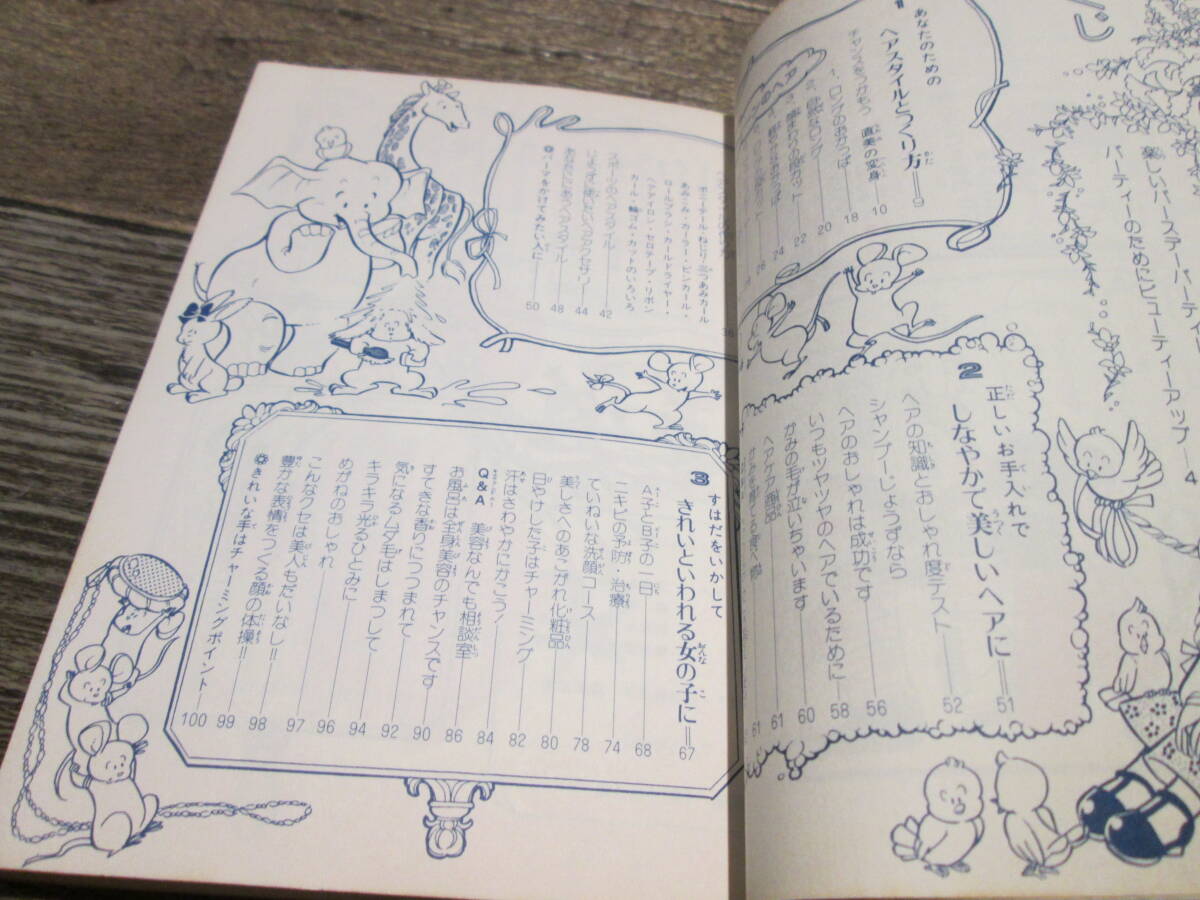 じ
楽しいバースデーパーティー
パーティーのためにビューティアップ—4
1 あなたのための
ヘアスタイルとつくり方=9
チャンスをつかもう 直美の変身—10
18
20
22
24
26
ポニーテール・ねじり・三つあみカール
あみこみ・カーラー・ピンカール・
ロールブラシ・カールドライヤー・
ヘアアイロン・セロテープ・リボン
カール・輪ゴム・カットのいろいろ
36
スポーツのヘアスタイル—42
じょうずに使いたいヘアアクセサリー—44
あなたににあうヘアスタイル—48
パーマをかけてみたい人に—50
2 正しいお手入れで
しなやかで美しいヘアに=51
ヘアの知識とおしゃれ度テスト—52
シャンプーじょうずなら
ヘアのおしゃれは成功です—56
いつもツヤツヤのヘアでいるために—58
かみの毛が泣いちゃいます—60
ヘアケア商品—61
61
3 すはだをいかして
きれいといわれる女の子に=67
A子とB子の一日—68
ニキビの予防、治療—74
ていねいな洗顔コース—78
美しさへのあこがれ化粧品—80
日やけした子はチャーミング
汗はさわやかにかこう!—82
Q&A 美容なんでも相談室—84
お風呂は全身美容のチャンスです—86
すてきな香りにつつまれて—90
気になるムダ毛はしまつして—92
キラキラ光るひとみに—94
めがねのおしゃれ—96
こんなクセは美人もだいなし!!—97
豊かな表情をつくる顔の体操!!—98
99
きれいな手はチャーミングポイント—100